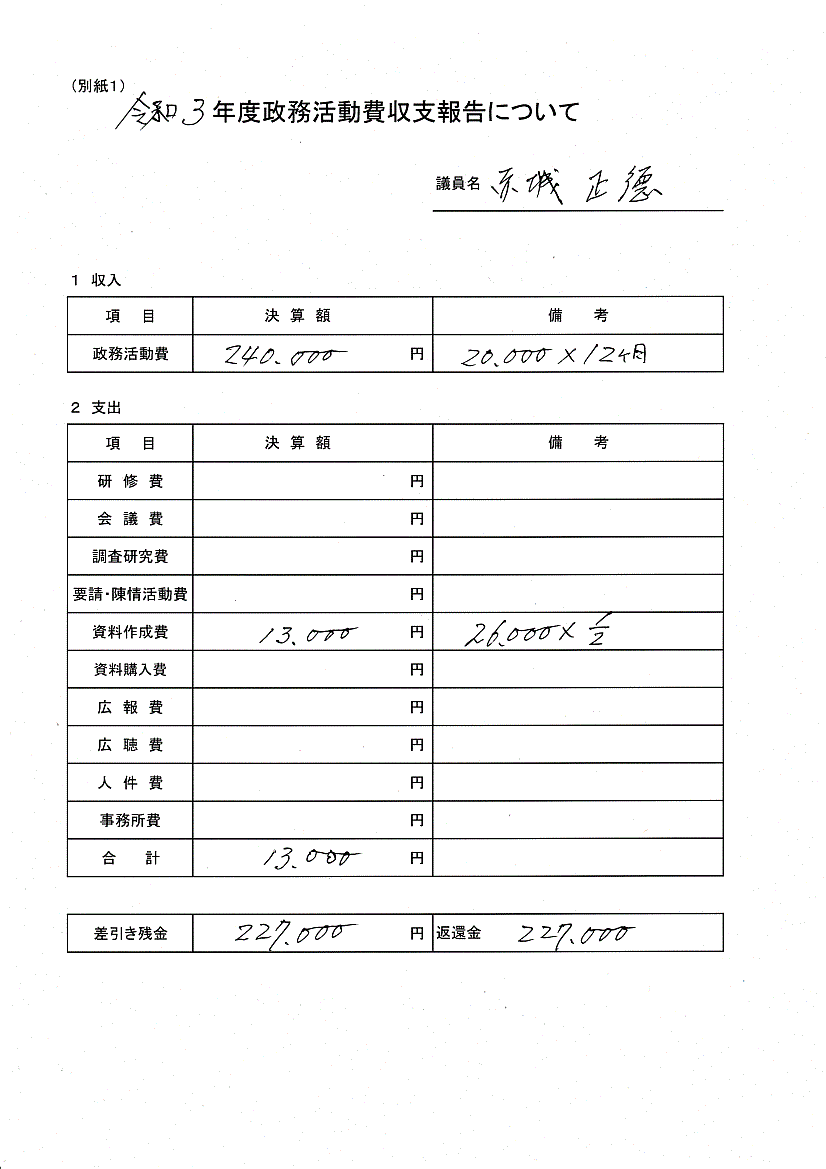 （別紙1）
令和3年度政務活動費収支報告について
議員名 赤城 正德
1 収入
項 目 決 算 額 備 考
政務活動費 240.000 円 20.000×12ヶ月
2 支出
項 目 決 算 額 備 考
研 修 費 円
会 議 費 円
調査研究費 円
要請・陳情活動費 円
資料作成費 13.000 円 26.000×1/2
資料購入費 円
広 報 費 円
広 聴 費 円
人 件 費 円
事務所費 円
合 計 13.000 円
差引き残金 227.000 円 返還金 227.000